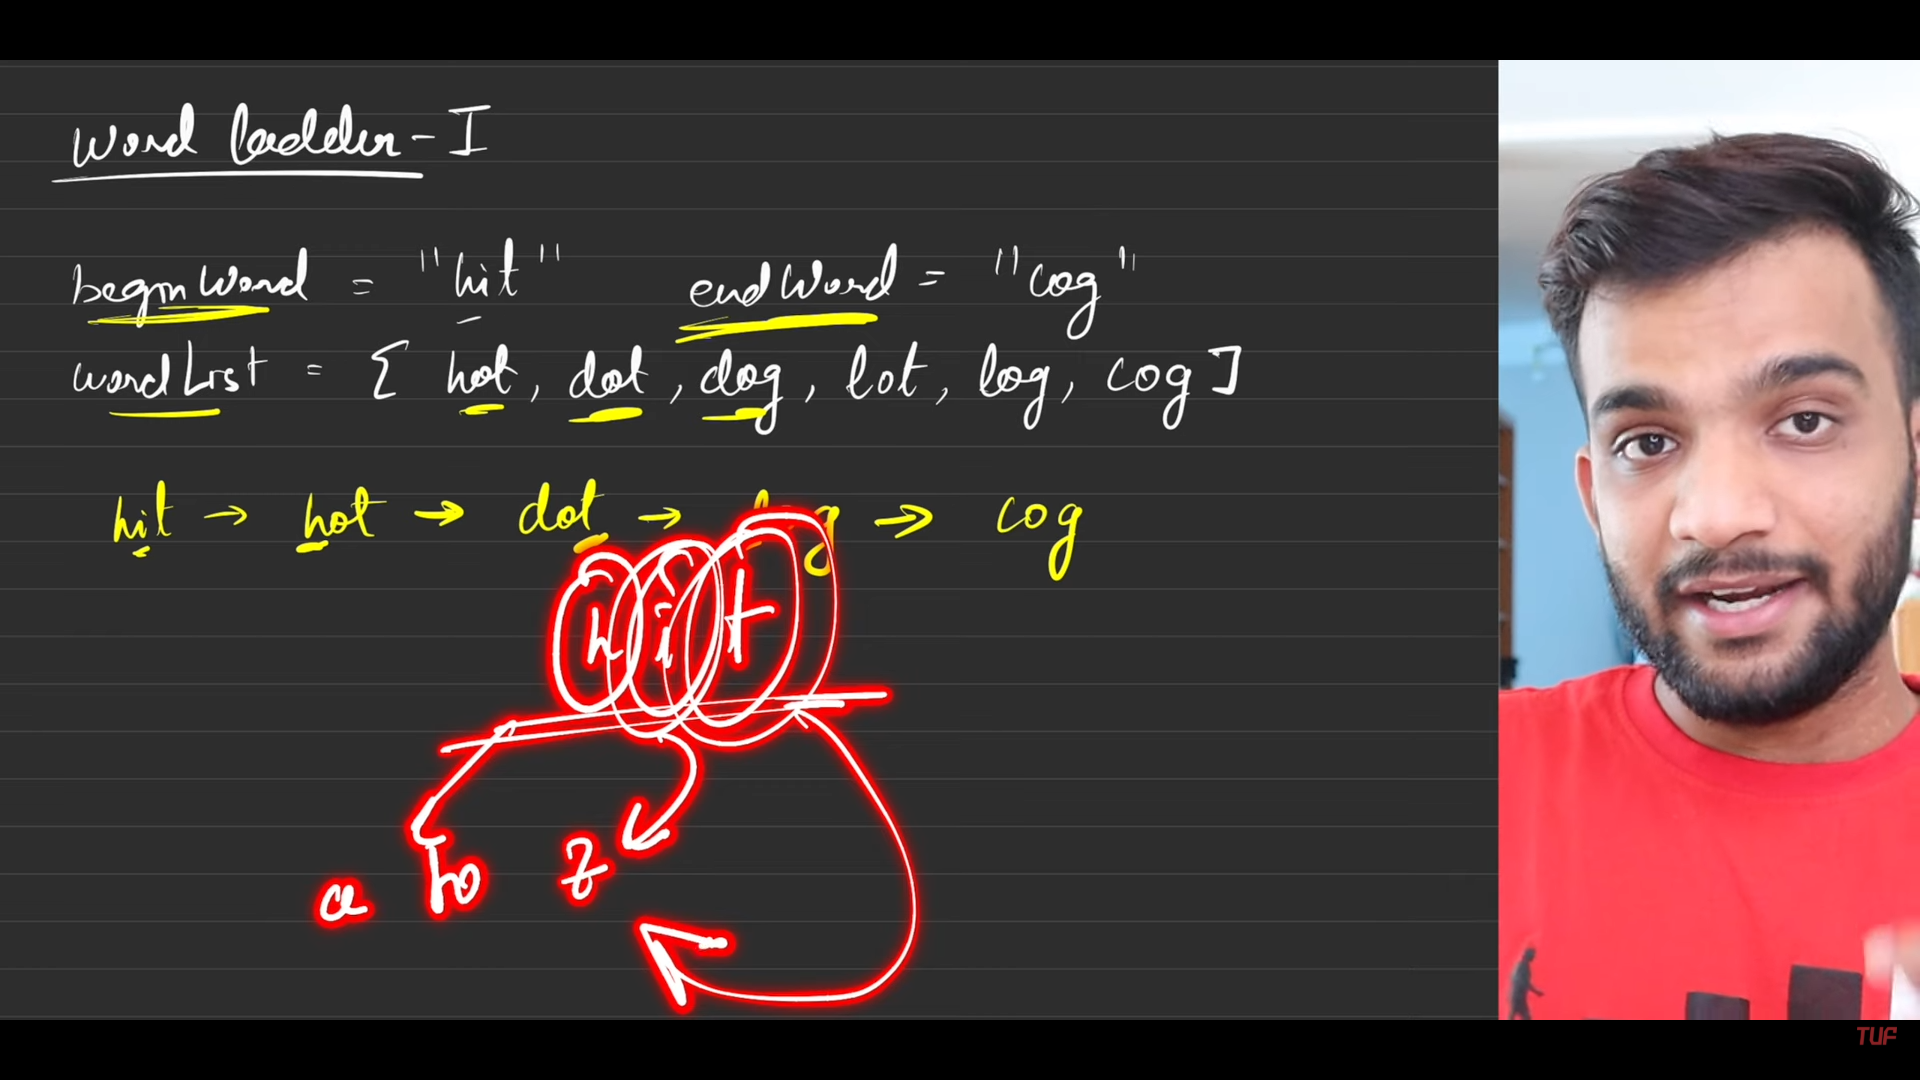 Word Ladder - I
beginWord = "hit" endWord = "cog"
wordList = { hot, dot, dog, lot, log, cog ]
hit → hot → dot → → cog
hit
a z
TUF